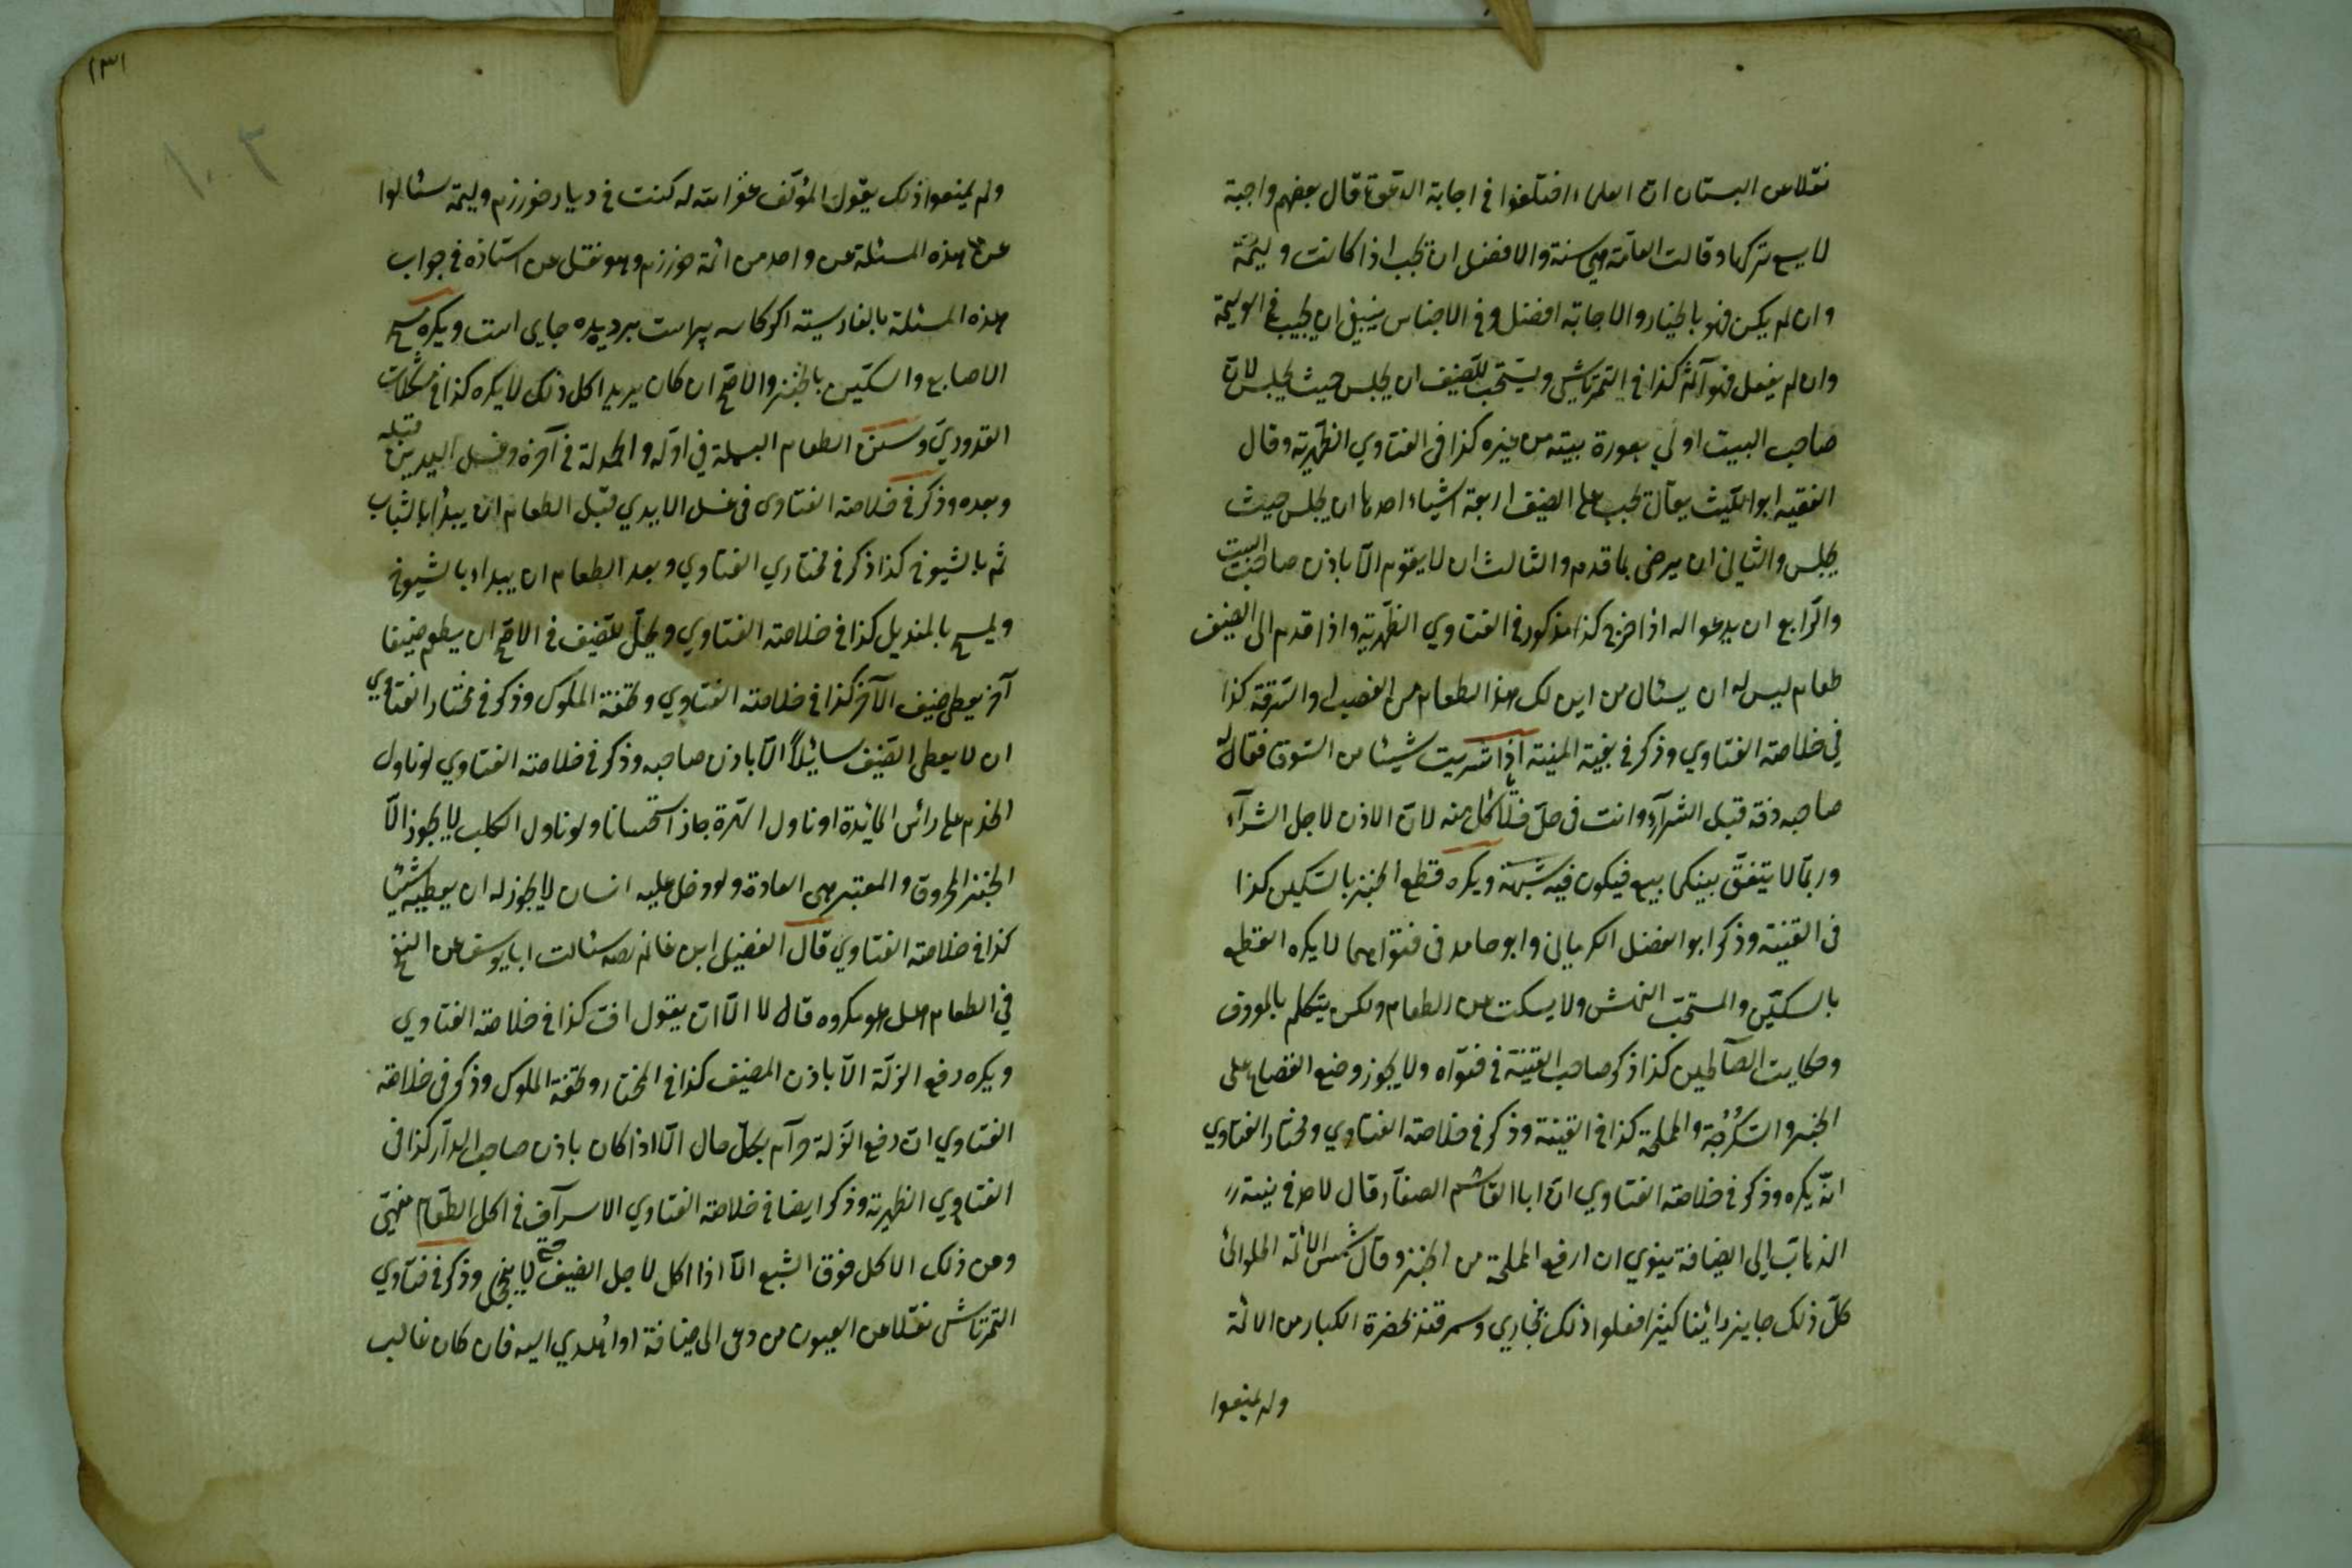 نقلا عن البستان ان العلماء اختلفوا في اجابة الدعوة قال بعضهم واجبة
لا يسع تركها وقالت العامّة هي سنة والافضل ان تجب اذا كانت وليمة
وان لم يكن فهو بالخيار والاجابة افضل وفي الاجناس ينبغي ان يجيب في الوليمة
وان لم يفعل فهو آثم كذا في التمرتاشي ويستحب للضيف ان يجلس حيث يجلس لان
صاحب البيت اولي بعورة بيته من غيره كذا في الفتاوي الظهيرية وقال
الفقيه ابو الليث يقال يجب على الضيف اربعة اشياء احدها ان يجلس حيث
يجلس والثاني ان يرضى بما قدم والثالث ان لا يقوم الّا باذن صاحب البيت
والرّابع ان يدعو له اذا خرج كذا مذكور في الفتاوي الظهيرية واذا قدم الى الضيف
طعام ليس له ان يسئال من اين لك هذا الطعام من الغصب او السّرقة كذا
في خلاصة الفتاوي وذكر في بغية المنية اذا شريت شيئا من السّوق فقال لك
صاحبه ذقه قبل الشرآء وانت في حلّ فلا تاكل منه لان الاذن لاجل الشرآء
وربما لا يتفق بينكما بيع فيكون فيه شبهة ويكره قطع الخبز بالسّكين كذا
في القنية وذكر ابو الفضل الكرماني وابو حامد في فتواهما لا يكره القطع
بالسكّين والمستحبّ النهش ولا يسكت عن الطعام ولكن يتكلم بالمعروف
وحكايت الصّالحين كذا ذكر صاحب القنية في فتواه ولا يجوز وضع القصاع على
الخبز والسُّكُرُّجة والمملحة كذا في القنية وذكر في خلاصة الفتاوي ومختار الفتاوي
انّه يكره وذكر في خلاصة الفتاوي ان ابا القاسم الصفّار قال لا اجد في نية
الذهاب إلى الضيافة ينوي ان ارفع المملحة من الخبز وقال شمس الائمة الحلوائي
كلّ ذلك جايز رائينا كثيرا فعلوا ذلك بخاري وسمرقند بحضرة الكبار من الائمة
ولم يمنعوا
١٣١
١٠٣
ولم يمنعوا ذلك يقول المؤلّف غفر الله له كنت في ديار خورزم وليمة سئالوا
عن هذه المسئلة عن واحد من ائمة خوزرم وهو نقل عن استاذه في جواب
هذه المسئلة بالفارسيته اكر كاسه پراست برديده جاى است ويكره مسح
الاصابع والسكّين بالخبز والاصح ان كان يريد اكل ذلك لا يكره كذا في مشكلات
القدوري وسنن الطعام البسملة في اوّله والحمدلة في آخره وغسل اليدين قبله
وبعده وذكر في خلاصة الفتاوى في غسل الايدي قبل الطعام ان يبدأ بالشباب
ثم بالشيوخ كذا ذكر في مختاري الفتاوي وبعد الطعام ان يبداء بالشيوخ
ويمسح بالمنديل كذا في خلاصة الفتاوي ويحلّ للضيف في الاصح ان يطعم ضيفا
آخر يعطى ضيف الآخر كذا في خلاصة الفتاوي وتحفة الملوك وذكر في مختار الفتاوي
ان لا يعطى الضيف سائيلاً الّا باذن صاحبه وذكر في خلاصة الفتاوي لو ناول
الخدم على رائس المائدة او ناول الهرة جاز استحسانا ولو ناول الكلب لا يجوز الّا
الخبز المحروق والمعتبر هى العادة ولو دخل عليه انسان لا يجوز له ان يعطيه شيئا
كذا في خلاصة الفتاوي قال الفضيل ابن غانم سئالت ابا يوسف عن النفخ
في الطعام هل هو مكروه قال لا الّا ان يقول اف كذا في خلاصة الفتاوي
ويكره رفع الزلّة الّا باذن المضيف كذا في المختار وتحفة الملوك وذكر في خلاصة
الفتاوي ان رفع الزّلة حرآم بكلّ حال الّا اذا كان باذن صاحب الدآر كذا في
الفتاوي الظهرية وذكر ايضا في خلاصة الفتاوي الاسرآف في اكل الطّعام منهيّ
ومن ذلك الاكل فوق الشبع الّا اذا اكل لاجل الضيف حتى لا يخجل وذكر في فتآوي
التمرتاشى نقلا عن العيون من دعى الى ضيافة او اهدي اليه فان كان غالب